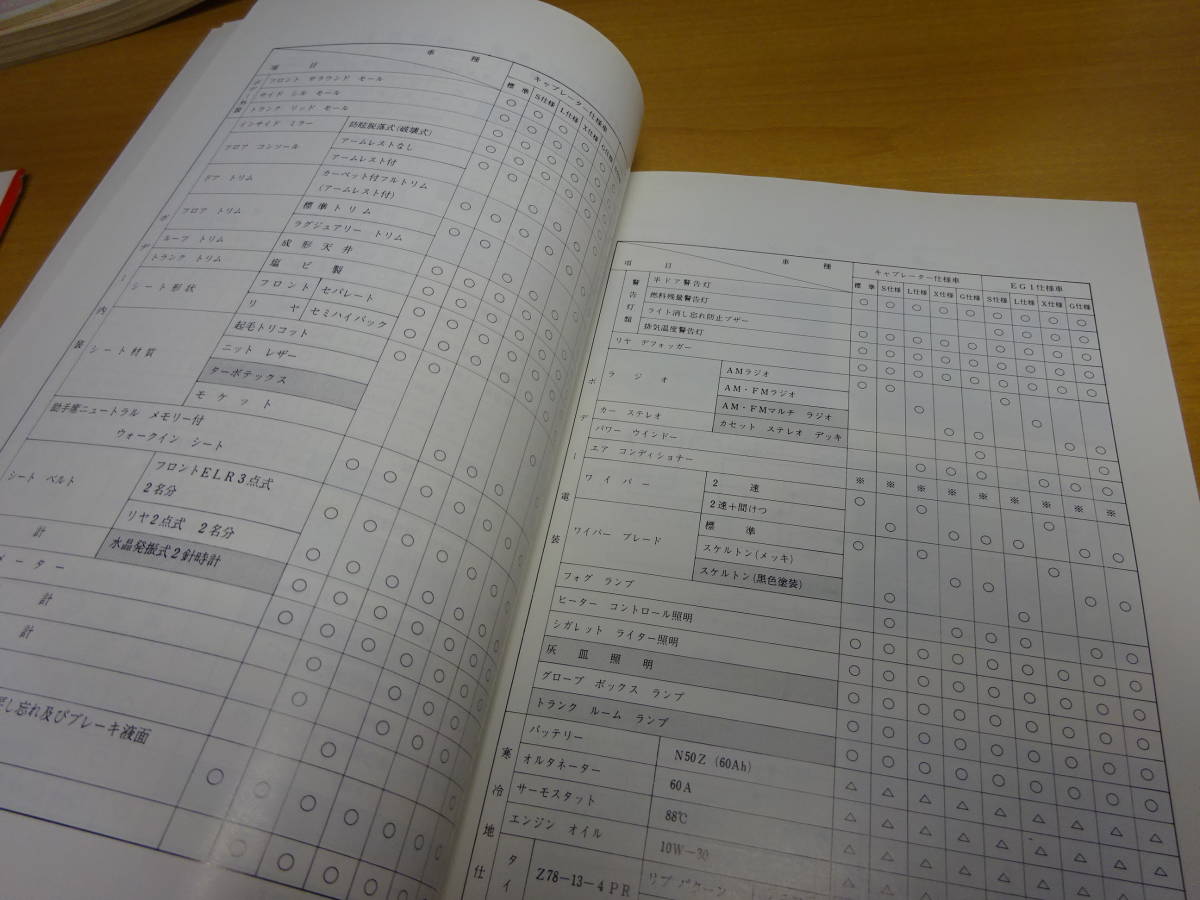 項 目 車 種
キャブレーター仕様車
標準 S仕様 L仕様 X仕様 G仕様
フロント サラウンド モール
サイド シル モール
トランク リッド モール
インサイド ミラー 防眩脱落式(破壊式)
フロア コンソール アームレストなし
アームレスト付
ドア トリム カーペット付フルトリム
(アームレスト付)
フロア トリム 標準トリム
ラグジュアリー トリム
ルーフ トリム 成形天井
トランク トリム 塩ビ製
シート形状 フロント セパレート
リヤ セミハイバック
シート材質 起毛トリコット
ニット レザー
ターボテックス
モケット
助手席ニュートラル メモリー付
ウォークイン シート
シート ベルト フロントELR3点式
2名分
リヤ2点式 2名分
計 水晶発振式2針時計
メーター
計
計
戻し忘れ及びブレーキ液面
ボデー内装
項 目 車 種
キャブレーター仕様車 EGI仕様車
標準 S仕様 L仕様 X仕様 G仕様 S仕様 L仕様 X仕様 G仕様
警告灯類 半ドア警告灯
燃料残量警告灯
ライト消し忘れ防止ブザー
排気温度警告灯
リヤ デフォッガー
ラジオ AMラジオ
AM・FMラジオ
AM・FMマルチ ラジオ
カー ステレオ カセット ステレオ デッキ
パワー ウインドー
エア コンディショナー ※ ※ ※ ※ ※ ※ ※ ※ ※
ワイパー 2 速
2速+間けつ
ワイパー ブレード 標 準
スケルトン(メッキ)
スケルトン(黒色塗装)
フォグ ランプ
ヒーター コントロール照明
シガレット ライター照明
灰皿照明
グローブ ボックス ランプ
トランク ルーム ランプ
ボデー電装
バッテリー N50Z (60Ah)
オルタネーター 60A
サーモスタット 88℃
エンジン オイル 10W-30
タイ Z78-13-4PR リブ パターン
寒冷地仕